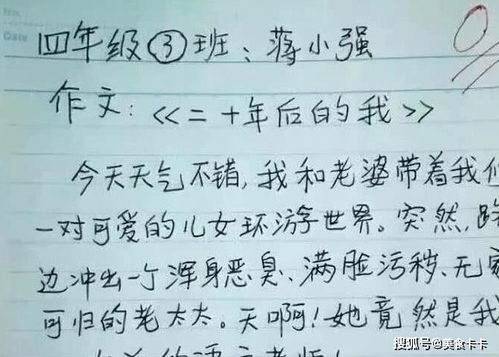 四年级③班：蒋小强
作文：<<二十年后的我>>
今天天气不错，我和老婆带着我
一对可爱的儿女环游世界。突然，路
边冲出一个浑身恶臭、满脸污秽、无家
可归的老太太。天啊！她竟然是我
搜狐号@美食卡卡